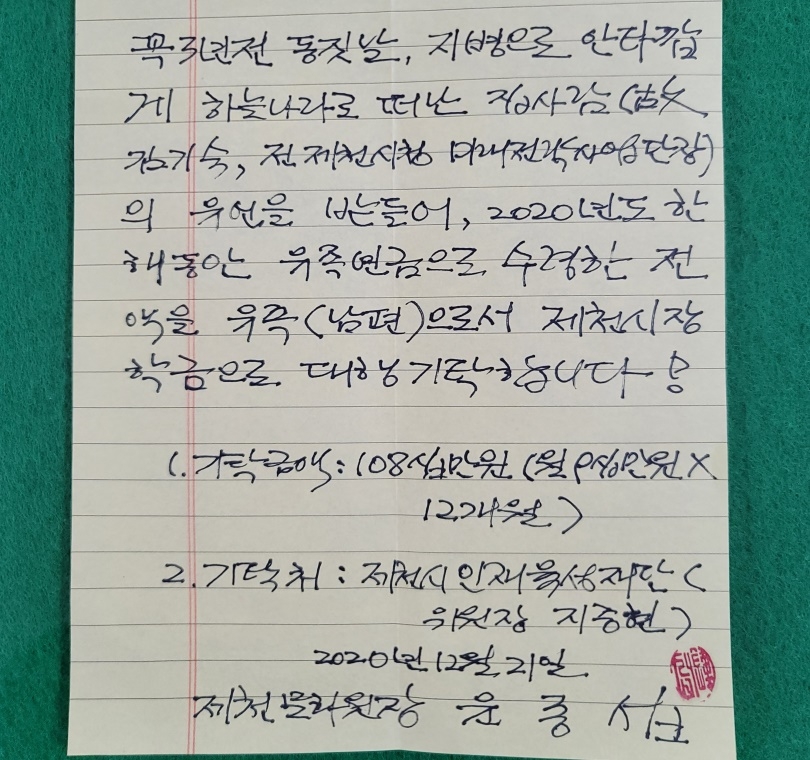 꼭 3년전 동짓날, 지병으로 안타깝
게 하늘나라로 떠난 집사람(故
김기숙, 전 제천시청 미래전략사업단장)
의 유언을 받들어, 2020년도 한
해동안 유족연금으로 수령한 전
액을 유족(남편)으로서 제천시장
학금으로 대행 기탁합니다!
1. 기탁금액: 108십만원 (월 9십만원 X
12개월)
2. 기탁처 : 제천시인재육성재단(
위원장 지중현)
2020년 12월 21일
제천문화원장 윤 종 섭